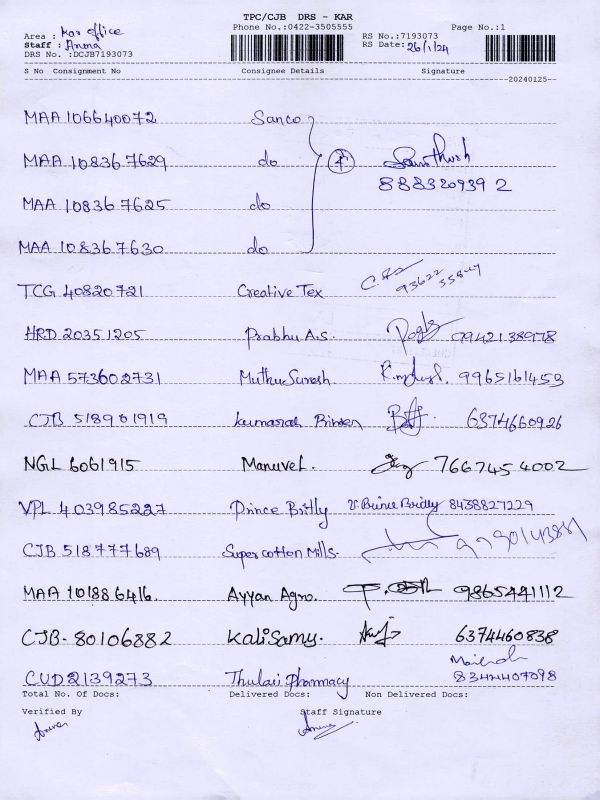 TPC/CJB DRS - KAR
Phone No.:0422-3505555
Page No.:1
Area : Kar office
RS No.:7193073
Staff : Amma
RS Date: 26/1/24
DRS No. :DCJB7193073
S No Consignment No Consignee Details Signature
20240125
MAA 106640072 Sanco
MAA 108367629 do 4 Santhosh
8883209392
MAA 108367625 do
MAA 108367630 do
TCG 40820721 Creative Tex 93622
HRD 20351205 Prabhu A.S. 9942138978
MAA 573602731 Muthu Suresh. 9965161453
CJB 518901919 Kumaran Printer 6374660926
NGL 6061915 Manuvel. 7667454002
VPL 403985227 Prince Britly V. Prince Bridly 8438827229
CJB 518777689 Super cotton Mills.
MAA 101886416. Ayyan Agro. 9865441112
CJB- 80106882 Kalisamy. 6374460838
CUD 2139273 Thulasi Pharmacy 8344407098
Total No. Of Docs: Delivered Docs: Non Delivered Docs:
Verified By Staff Signature